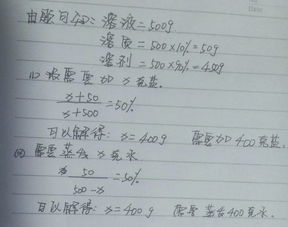 由题可知: 溶液=500g
溶质=500×10%=50g
溶剂=500×90%=450g
(1) 设需要加 x 克盐.
x+50 / x+500 =50%
可以解得: x=400g 需要加400克盐.
(2) 需要蒸发 x 克水
50 / 500-x =50%
可以解得: x=400g 需要蒸发400克水.